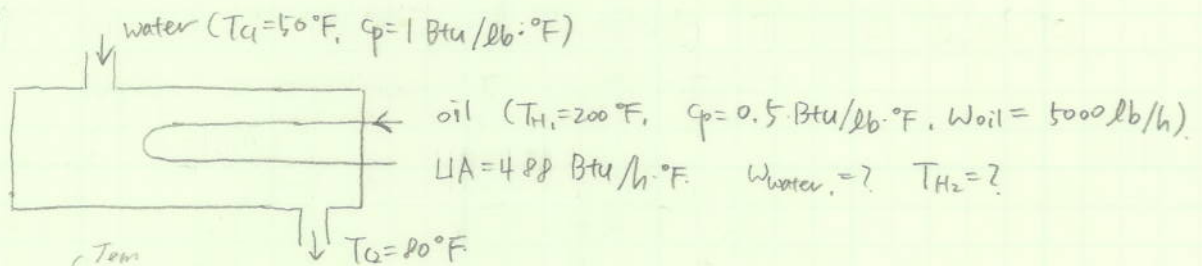 water (Tc1=50°F, Cp=1 Btu/lb·°F)
oil (TH1=200°F, Cp=0.5 Btu/lb·°F, Woil= 5000 lb/h)
UA=488 Btu/h·°F. Wwater,=? TH2=?
Tc2=80°F
Tem